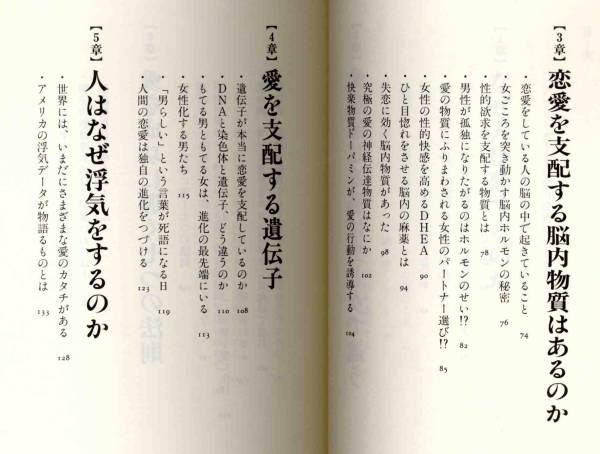 【3章】恋愛を支配する脳内物質はあるのか
・恋愛をしている人の脳の中で起きていること 74
・女ごころを突き動かす脳内ホルモンの秘密 76
・性的欲求を支配する物質とは 78
・男性が孤独になりたがるのはホルモンのせい!? 82
・愛の物質にふりまわされる女性のパートナー選び!? 85
・女性の性的快感を高めるDHEA 90
・ひと目惚れをさせる脳内の麻薬とは 94
・失恋に効く脳内物質があった 98
・究極の愛の神経伝達物質はなにか 102
・快楽物質ドーパミンが、愛の行動を誘導する 104
【4章】愛を支配する遺伝子
・遺伝子が本当に恋愛を支配しているのか 108
・DNAと染色体と遺伝子、どう違うのか 110
・もてる男ともてる女は、進化の最先端にいる 113
・女性化する男たち 115
・「男らしい」という言葉が死語になる日 119
・人間の恋愛は独自の進化をつづける 123
【5章】人はなぜ浮気をするのか
・世界には、いまだにさまざまな愛のカタチがある 128
・アメリカの浮気データが物語るものとは 133